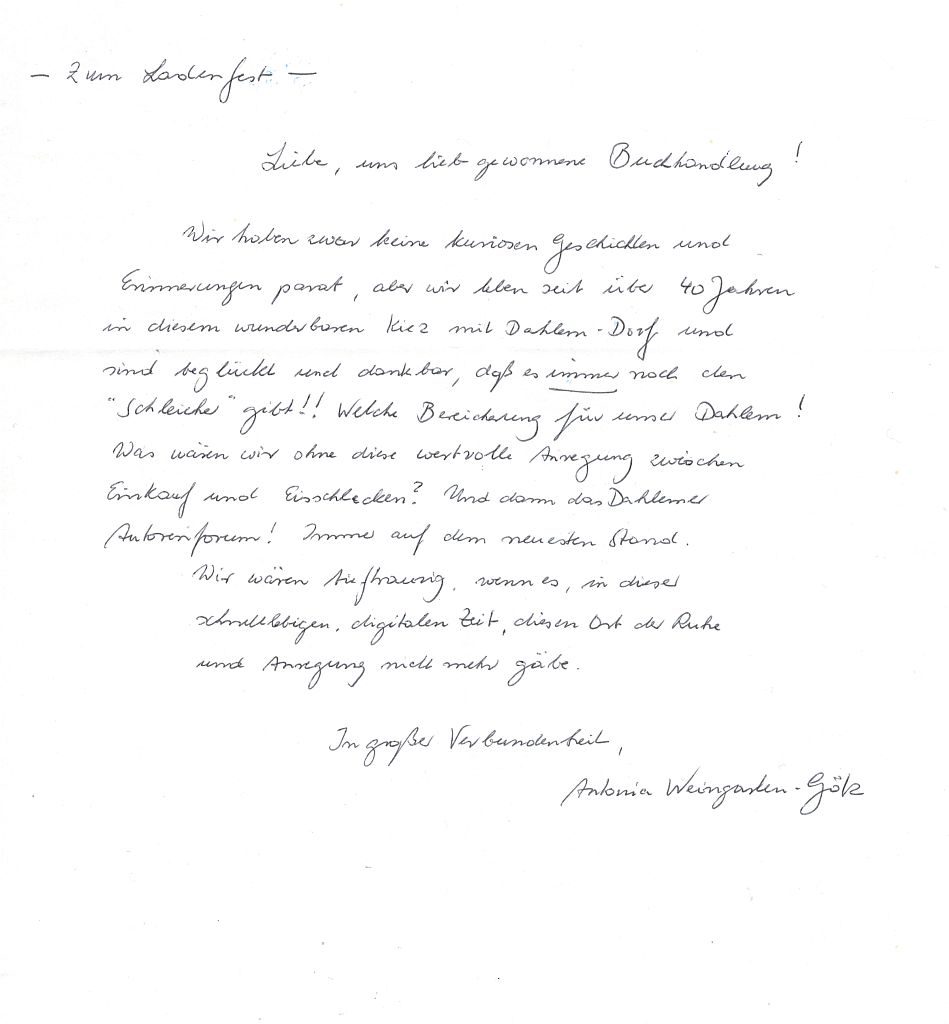 — Zum Ladenfest —
Liebe, uns lieb gewonnene Buchhandlung!
Wir haben zwar keine kuriosen Geschichten und
Erinnerungen parat, aber wir leben seit über 40 Jahren
in diesem wunderbaren Kiez mit Dahlem-Dorf und
sind beglückt und dankbar, daß es immer noch den
"Schleicher" gibt!! Welche Bereicherung für unser Dahlem!
Was wären wir ohne diese wertvolle Anregung zwischen
Einkauf und Eisschlecken? Und dann das Dahlemer
Autorenforum! Immer auf dem neuesten Stand.
Wir wären tieftraurig, wenn es, in dieser
schnelllebigen, digitalen Zeit, diesen Ort der Ruhe
und Anregung nicht mehr gäbe.
In großer Verbundenheit,
Antonia Weingarten-Gölz